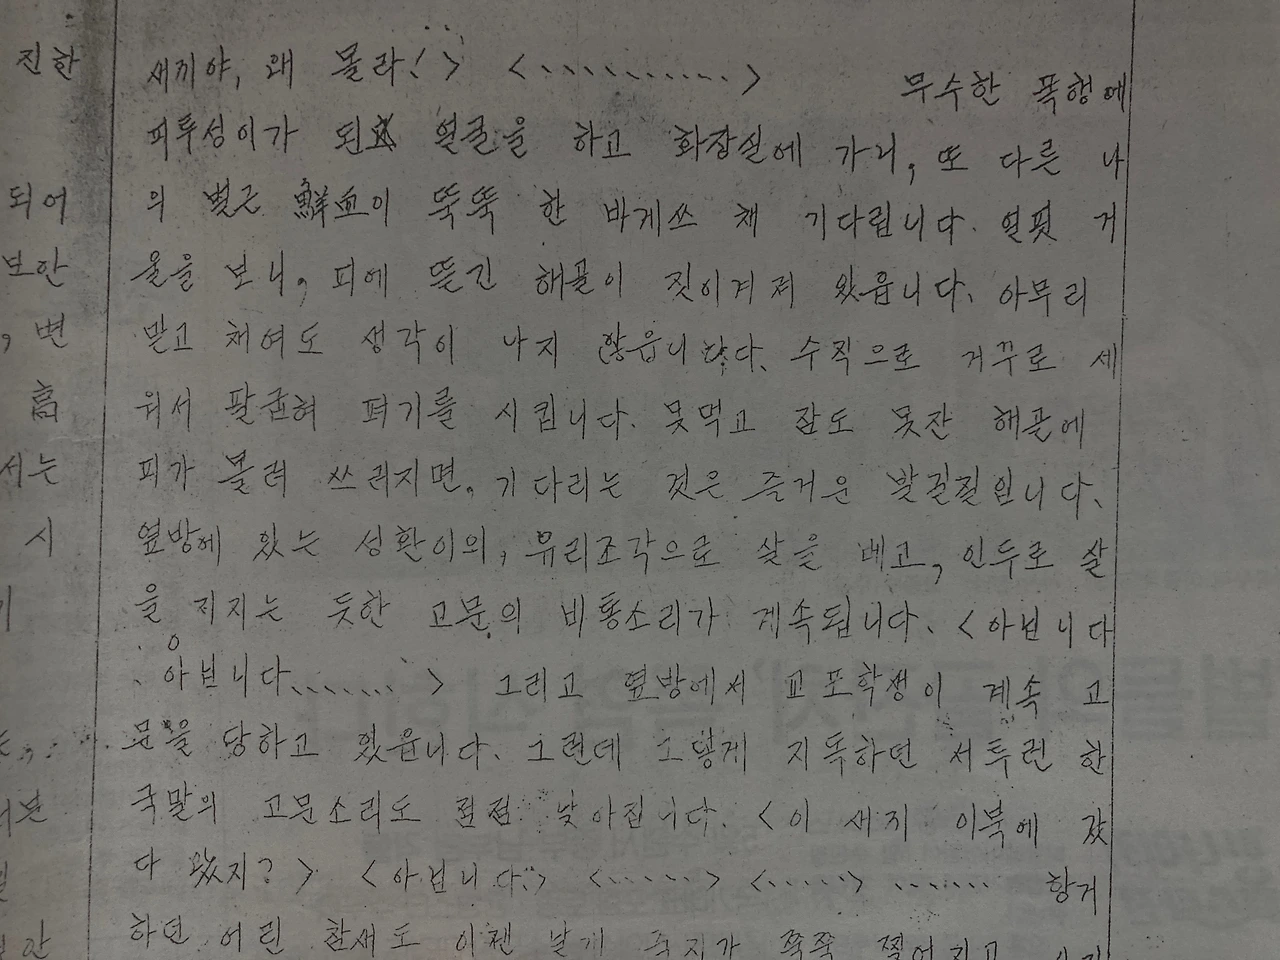 새끼야, 왜 몰라!> <...........> 무수한 폭행에
피투성이가 된 얼굴을 하고 화장실에 가니, 또 다른 나
의 벌근 鮮血이 뚝뚝 한 바게쓰 채 기다립니다. 얼핏 거
울을 보니, 피에 뜯긴 해골이 짓이겨져 있읍니다. 아무리
맞고 채여도 생각이 나지 않읍니다. 수직으로 거꾸로 세
워서 팔굽혀 펴기를 시킵니다. 못먹고 잠도 못잔 해골에
피가 몰려 쓰러지면, 기다리는 것은 즐거운 발길질입니다.
옆방에 있는 성환이의, 유리조각으로 살을 베고, 인두로 살
을 지지는 듯한 고문의 비통소리가 계속됩니다. <아닙니다
아닙니다.......> 그리고 옆방에서 교포학생이 계속 고
문을 당하고 있읍니다. 그런데 그렇게 지독하던 서투런 한
국말의 고문소리도 점점 낮아집니다. <이 새끼 이북에 갔
다 왔지?> <아닙니다.> <......> <.....> ....... 항거
하던 어린 참새도 이젠 날개 죽지가 쭉쭉 찢어지고
진한
되어
보안
, 변
高
서는
시
기